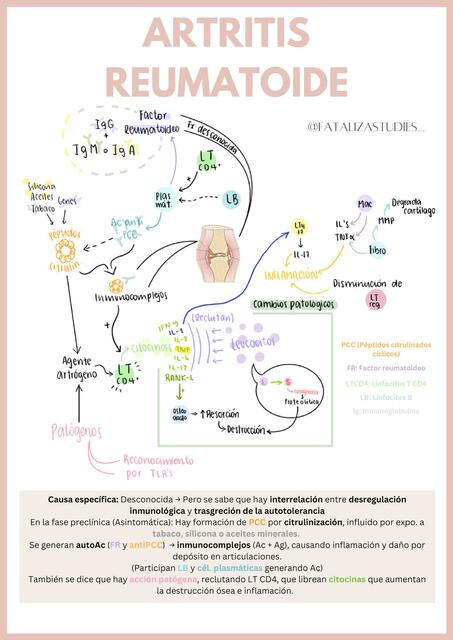 ARTRITIS
REUMATOIDE
@FATALIZASTUDIES_
Factor
Reumatoideo
IgG
+
IgM o IgA
Fr desconocida
LT
CD4+
+
Silicona
Aceites
Tabaco
Genes
Plas
mát.
LB
Ac anti
PCC
Péptidos
citrulin
Inmunocomplejos
+
Agente
artrógeno
LT
CD4+
Patógenos
Reconocimiento
por TLR's
citocinas
IFN-γ
IL-1
TNF
IL-6
IL-17
RANK-L
(Reclutan)
Leucocitos
LTH
17
IL-17
INFLAMACIÓN
Mac
IL's
TNFα
MMP
Degrada
cartílago
Fibro
Disminución de
LT
reg
Cambios patológicos
L
S
colagenasa
Proteolítica
Osteo
clasto
↑ Resorción
Destrucción
PCC (Péptidos citrulinados
cíclicos)
FR: Factor reumatoideo
LTCD4: Linfocitos T CD4
LB: Linfocitos B
Ig: Inmunoglobulina
Causa específica: Desconocida → Pero se sabe que hay interrelación entre desregulación
inmunológica y trasgreción de la autotolerancia
En la fase preclínica (Asintomática): Hay formación de PCC por citrulinización, influido por expo. a
tabaco, silicona o aceites minerales.
Se generan autoAc (FR y antiPCC) → inmunocomplejos (Ac + Ag), causando inflamación y daño por
depósito en articulaciones.
(Participan LB y cél. plasmáticas generando Ac)
También se dice que hay acción patógena, reclutando LT CD4, que librean citocinas que aumentan
la destrucción ósea e inflamación.